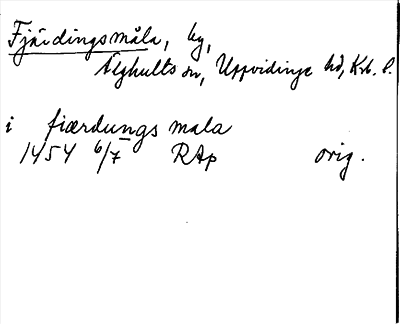 Fjärdingsmåla, by,
Älghults sn, Uppvidinge hd, Krb. l.
i fiærdungs mala
1454 6/7 RAp orig.